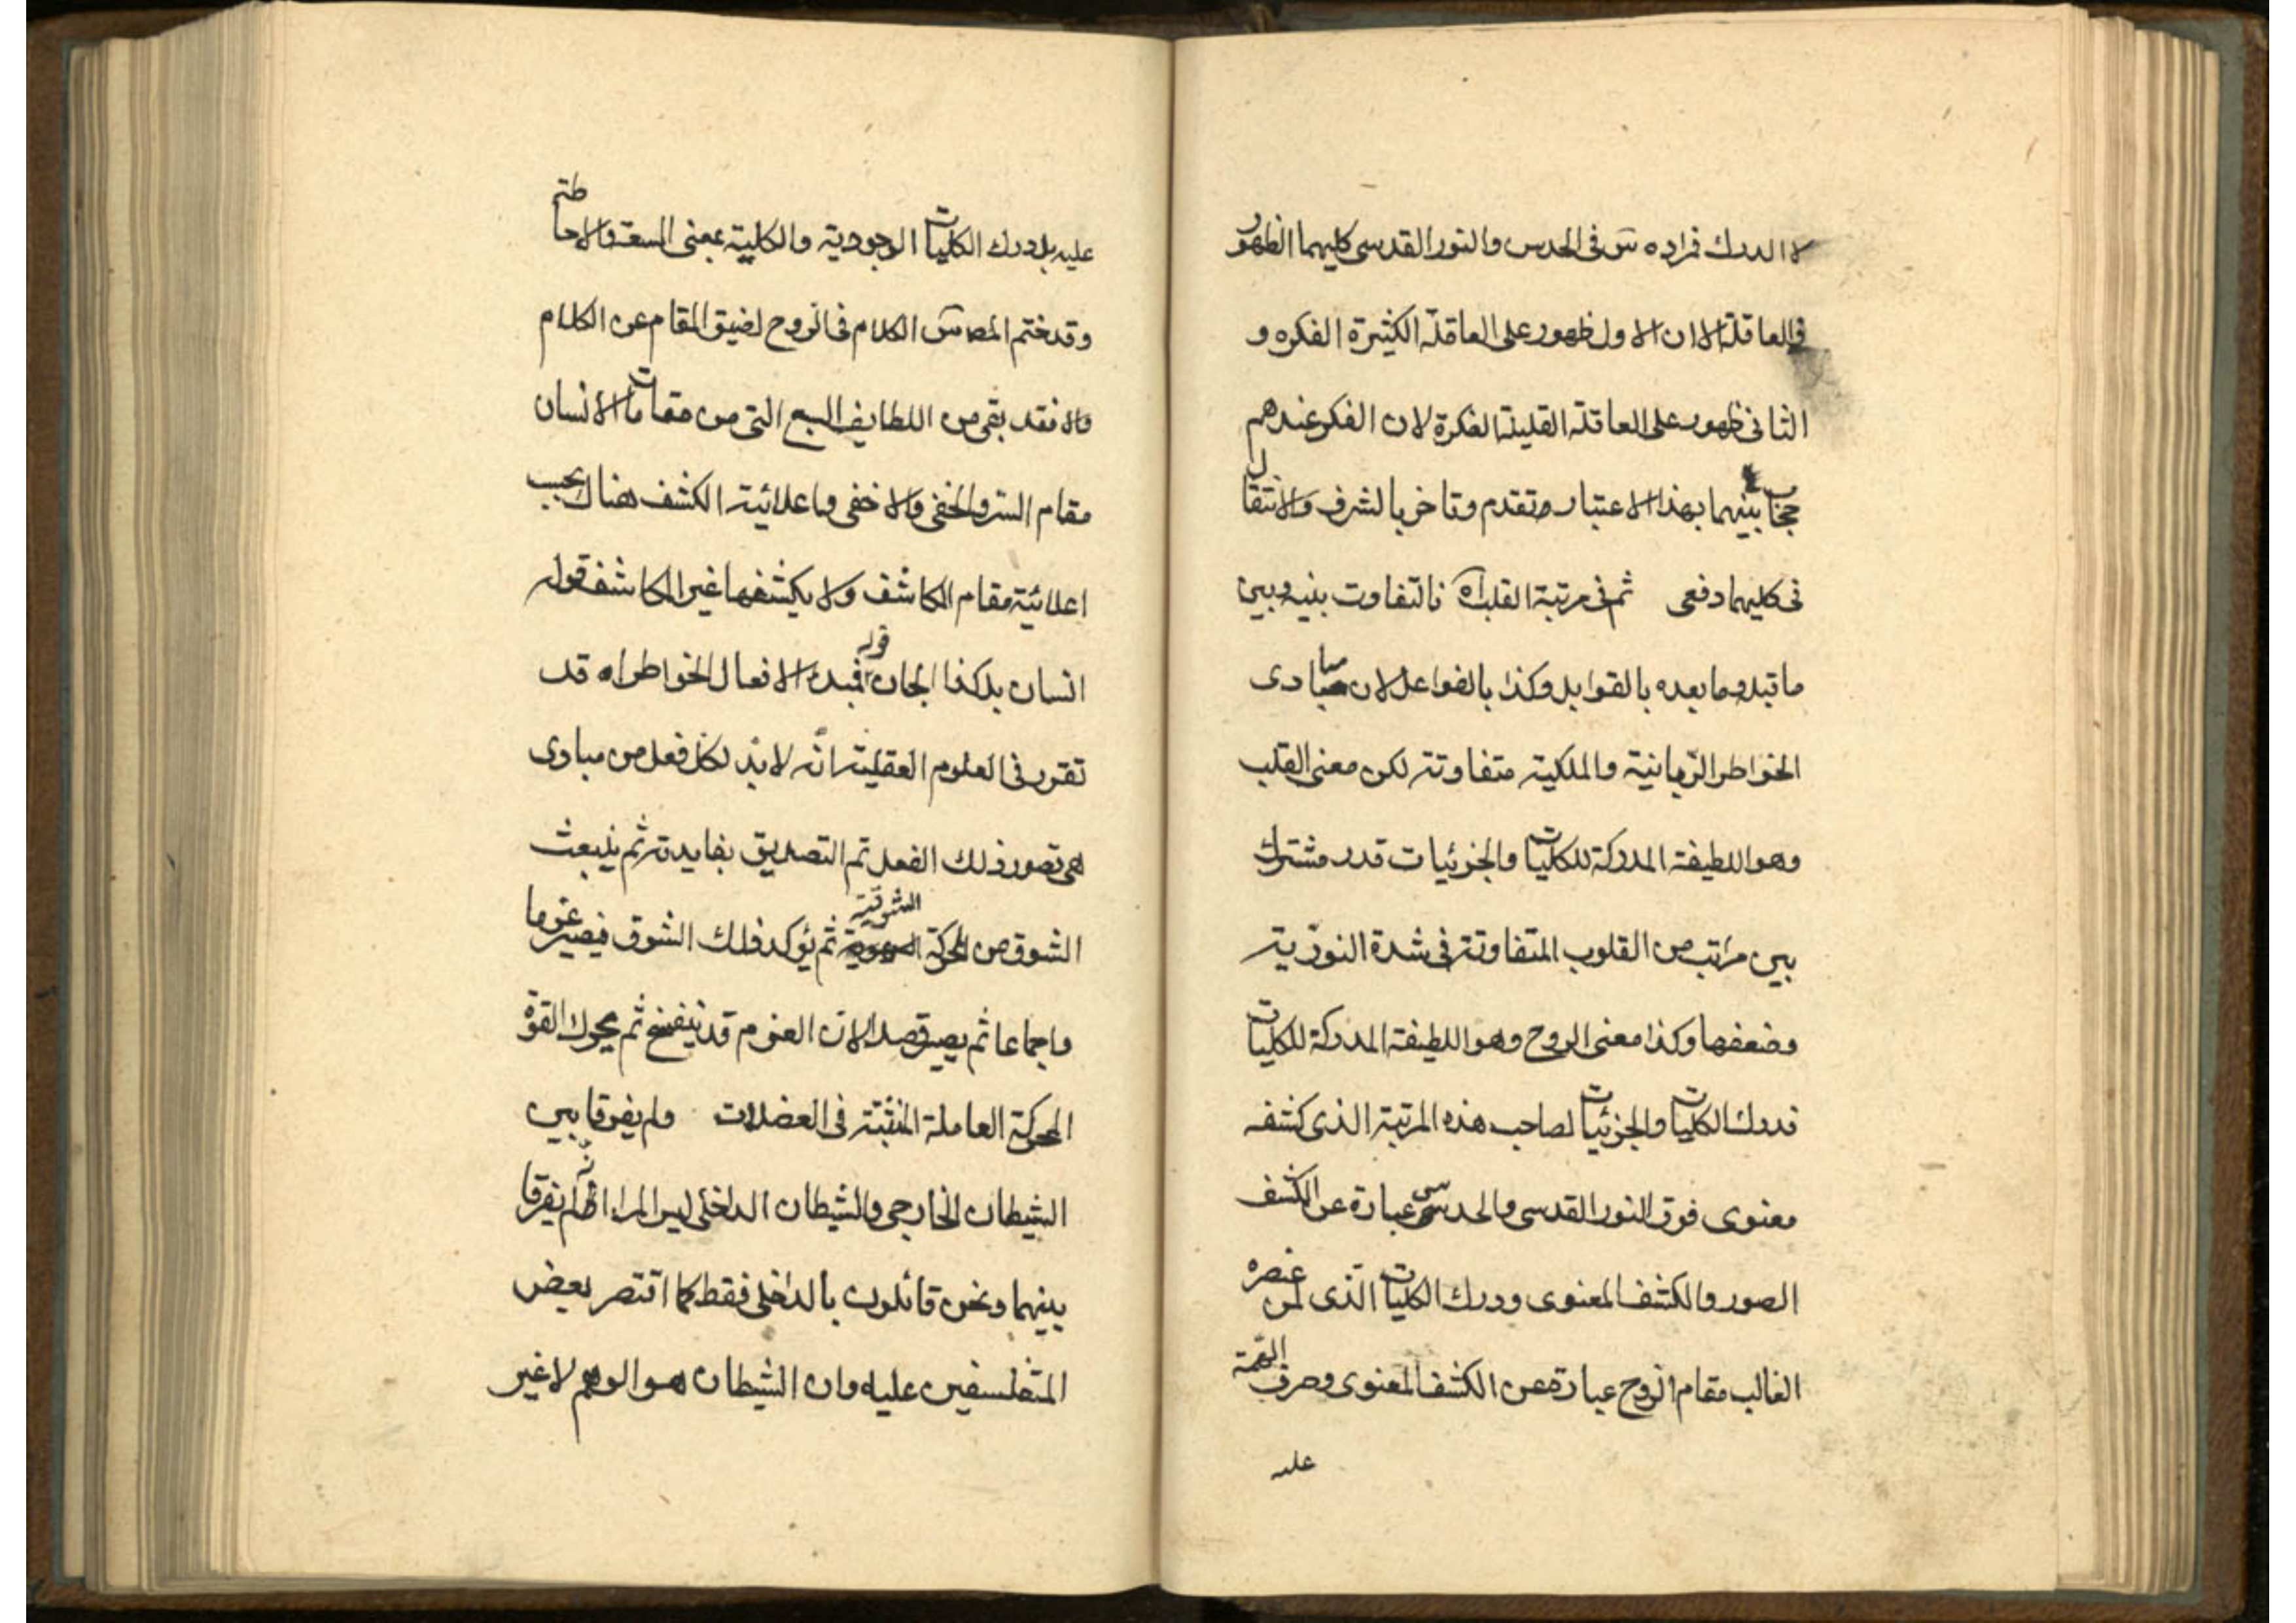 لا الدرك فمراده سّ فى الحدس والنور القدسى كليهما الظهور
فى العاقلة الا ان الاول ظهور على العاقلة الكثيرة الفكره و
الثانى ظهور على العاقلة القليلة الفكرة لان الفكر عندهم
حجاب بينهما بهذا الاعتبار وتقدم وتاخر بالشرف والانتقال
فى كليهما دفعى ثم فى مرتبة القلب اه فالتفاوت بينه وبين
ما قبله وما بعده بالقوابل وكذا بالفواعل لان مبادى
الخواطر الربانية والملكية متفاوتة لكن معنى القلب
وهو اللطيفة المدركة للكليات والجزئيات قدر مشترك
بين مراتب من القلوب المتفاوتة فى شدة النورية
وضعفها وكذا معنى الروح وهو اللطيفة المدركة للكليات
فدرك الكليات والجزئيات لصاحب هذه المرتبة الذى كشفه
معنوى فوق النور القدسى والحدسى عبارة عن الكشف
الصور والكشف المعنوى ودرك الكليات الذى لمن عنصره
الغالب مقام الروح عبارة عن الكشف المعنوى وصرف القمة
عليه
عليه بل درك الكليات الوجودية والكلية بمعنى السعة والاحاطة
وقد ختم المص سّ الكلام فى الروح لضيق المقام عن الكلام
والا فقد بقى من اللطايف السبع التى من مقامات الانسان
مقام السر والخفى والاخفى وما علائية الكشف هناك بحسب
اعلائية مقام الكاشف ولا يكشفها غير الكاشف قوله
انسان بل كذا الجان قوله فمبدء الافعال الخواطر اه قد
تقرر فى العلوم العقلية انّه لا بد لكل فعل من مبادى
هى تصور ذلك الفعل ثم التصديق بفايدته ثم ينبعث
الشوق من المحركة الشوقية ثم يؤكد ذلك الشوق فيصير عزما
واجماعا ثم يصير قصدا لان العزم قد ينفسخ ثم يحرك القوة
المحركة العاملة المنبثة فى العضلات ولم يفرقا بين
الشيطان الخارجى والشيطان الداخلى ليس المراد انه لم يفرقا
بينهما ونحن قائلون بالداخلى فقط كما اقتصر بعض
المتفلسفين عليه وان الشيطان هو الوهم لا غير